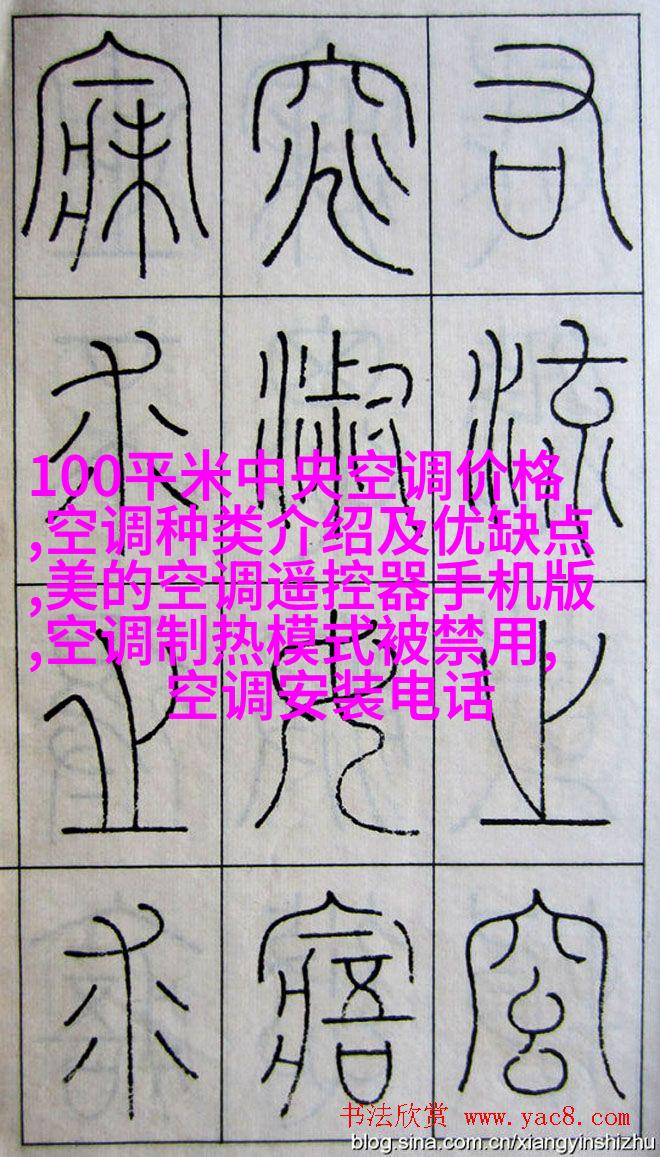 右流之窈
窕淑女寤
寐求之求
100平米中央空调价格
,空调种类介绍及优缺点
,美的空调遥控器手机版
,空调制热模式被禁用,
空调安装电话
书法欣赏 www.yac8.com
blog.sina.com.cn/xiangyinshizhu